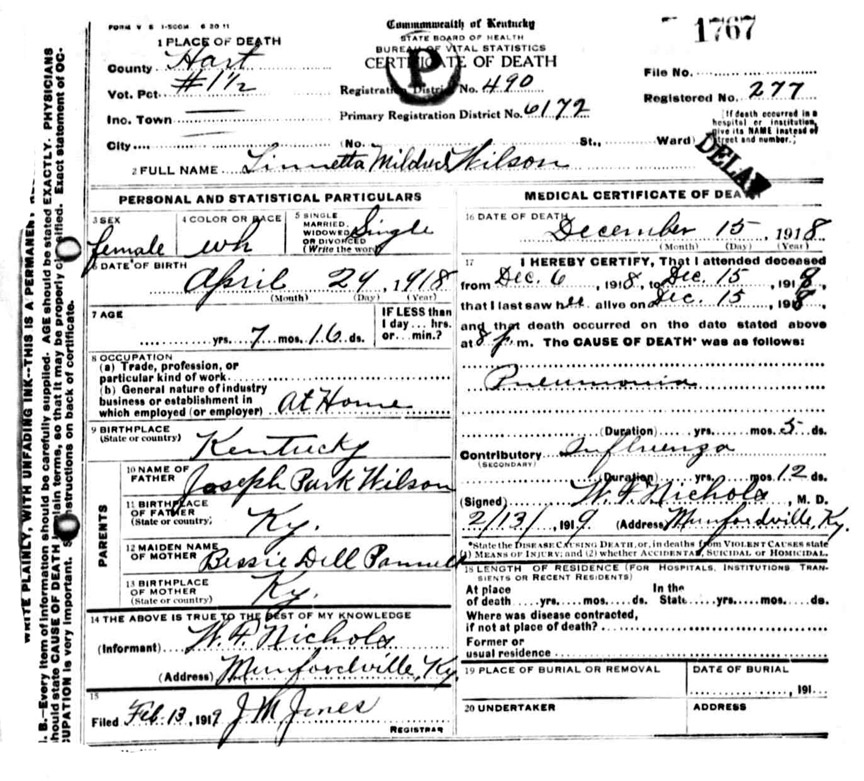 FORM V S 1-500M 6 20 11
Commonwealth of Kentucky
STATE BOARD OF HEALTH
BUREAU OF VITAL STATISTICS
CERTIFICATE OF DEATH
P
1767
1 PLACE OF DEATH
County Hart
Vot. Pct. #1½
Inc. Town
City (No. St., Ward)
Registration District No. 490
Primary Registration District No. 6172
File No.
Registered No. 277
[If death occurred in a
hospital or institution,
give its NAME instead of
street and number.]
DELAY
2 FULL NAME Linnetta Mildred Wilson
PERSONAL AND STATISTICAL PARTICULARS
3 SEX female
4 COLOR OR RACE wh
5 SINGLE MARRIED, WIDOWED OR DIVORCED (Write the word) Single
6 DATE OF BIRTH April 29, 1918
(Month) (Day) (Year)
7 AGE yrs. 7 mos. 16 ds.
IF LESS than
1 day... hrs.
or... min.?
8 OCCUPATION
(a) Trade, profession, or
particular kind of work
(b) General nature of industry
business or establishment in
which employed (or employer) At Home
9 BIRTHPLACE
(State or country) Kentucky
PARENTS
10 NAME OF FATHER Joseph Park Wilson
11 BIRTHPLACE OF FATHER (State or country) Ky.
12 MAIDEN NAME OF MOTHER Bessie Dell
13 BIRTHPLACE OF MOTHER (State or country) Ky.
14 THE ABOVE IS TRUE TO THE BEST OF MY KNOWLEDGE
(Informant) W. F. Nichols
(Address) Munfordville, Ky.
15
Filed Feb. 13, 1919 J M Jones
REGISTRAR
MEDICAL CERTIFICATE OF DEATH
16 DATE OF DEATH December 15, 1918
(Month) (Day) (Year)
17 I HEREBY CERTIFY, That I attended deceased
from Dec. 6, 1918, to Dec. 15, 1918,
that I last saw her alive on Dec. 15, 1918,
and that death occurred on the date stated above
at 8 p.m. The CAUSE OF DEATH* was as follows:
Pneumonia
(Duration) yrs. mos. 5 ds.
Contributory Influenza
(SECONDARY)
(Duration) yrs. mos. 12 ds.
(Signed) W. F. Nichols, M. D.
2/13/, 1919 (Address) Munfordville, Ky.
*State the DISEASE CAUSING DEATH, or, in deaths from VIOLENT CAUSES state
(1) MEANS OF INJURY; and (2) whether ACCIDENTAL, SUICIDAL or HOMICIDAL.
18 LENGTH OF RESIDENCE (FOR HOSPITALS, INSTITUTIONS TRAN-
SIENTS OR RECENT RESIDENTS)
At place In the
of death yrs. mos. ds. State yrs. mos. ds.
Where was disease contracted,
if not at place of death?
Former or
usual residence
19 PLACE OF BURIAL OR REMOVAL
DATE OF BURIAL
, 191
20 UNDERTAKER
ADDRESS
WRITE PLAINLY, WITH UNFADING INK--THIS IS A PERMANENT
B.--Every item of information should be carefully supplied. AGE should be stated EXACTLY. PHYSICIANS
should state CAUSE OF DEATH in terms, so that it may be properly classified. Exact statement of OC-
CUPATION is very important. See instructions on back of certificate.